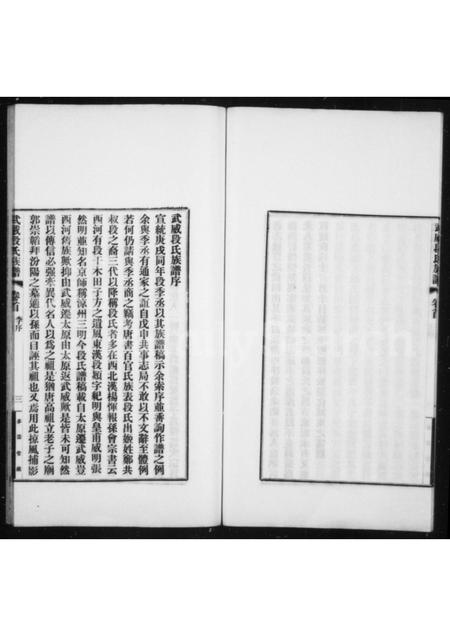 武威段氏族譜序
宣統庚戌同年段季丞以其族譜稿示余索序並審詢作譜之例
余與季丞有通家之誼自戊申共事志局不敢以不文辭至體例
若何仍請與季丞商之竊考唐書百官氏族表段氏出姬姓鄭共
叔段之裔三代以降稱段氏者多在西北漢楊惲報孫會宗書云
西河有段干木田子方之遺風東漢段熲字紀明與皇甫威明張
然明並知名京師稱涼州三明今段氏譜稿載自太原遷武威豈
西河舊族歟抑由武威遷太原由太原返武威歟是皆未可知然
譜以傳信必強牽異代名人以為之祖是猶唐高祖立老子之廟
郭崇韜拜汾陽之墓適以孫而目誣其祖也又焉用此掠風捕影
武威段氏族譜 卷首 李序 三
武威段氏族譜 卷首